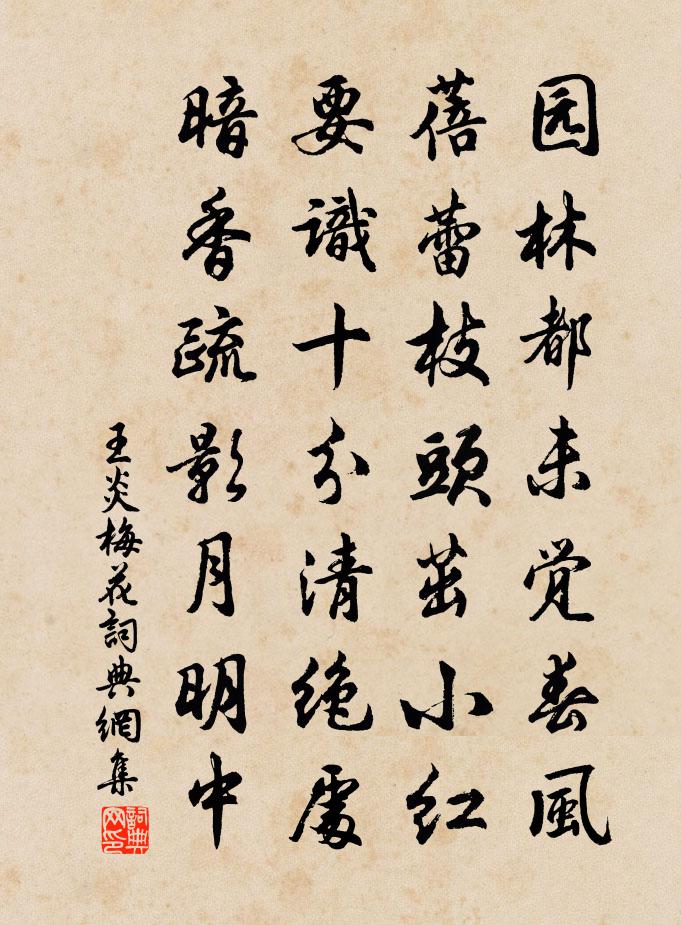 园林都未觉春風
蓓蕾枝頭茁小红
要識十分清绝處
暗香疏影月明中
王炎梅花詞典網集
詞典网印